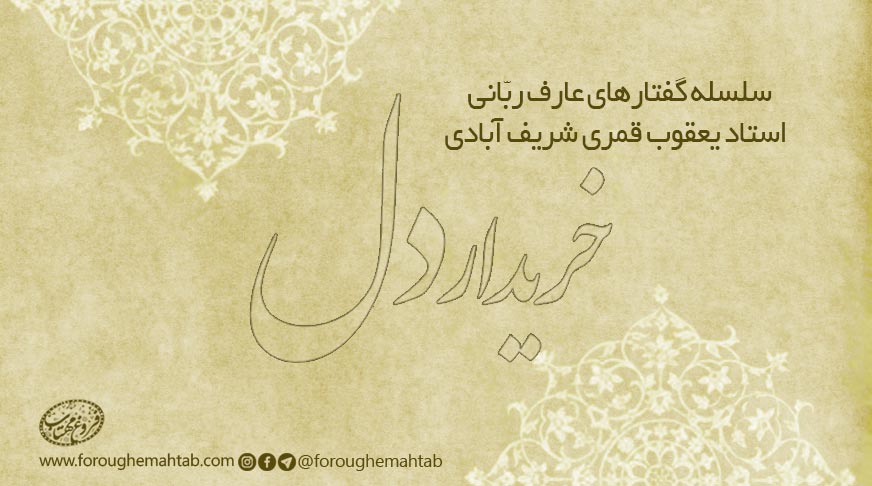 سلسله گفتارهای عارف ربّانی
استاد یعقوب قمری شریف آبادی
خریدار دل
فروغ مهتاب
www.foroughemahtab.com @foroughemahtab